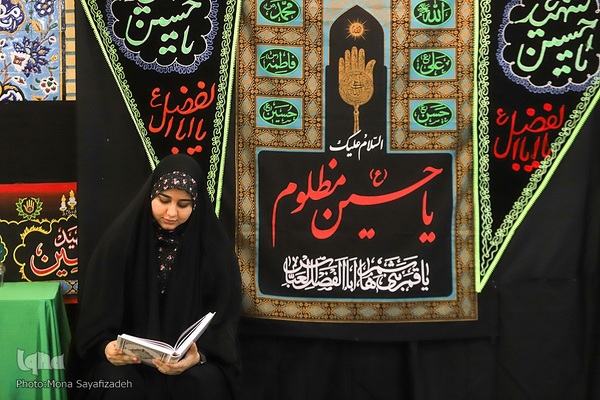 شهید
یا حسین
یا ابا الفضل ع
محمد
فاطمه
حسین
الله
علی
حسن
السلام علیک
یا حسین مظلوم (ع)
یا قمر بنی هاشم یا ابا الفضل العباس
شهید
یا حسین
یا ابا الفضل ع
iqna
Photo:Mona Sayafizadeh